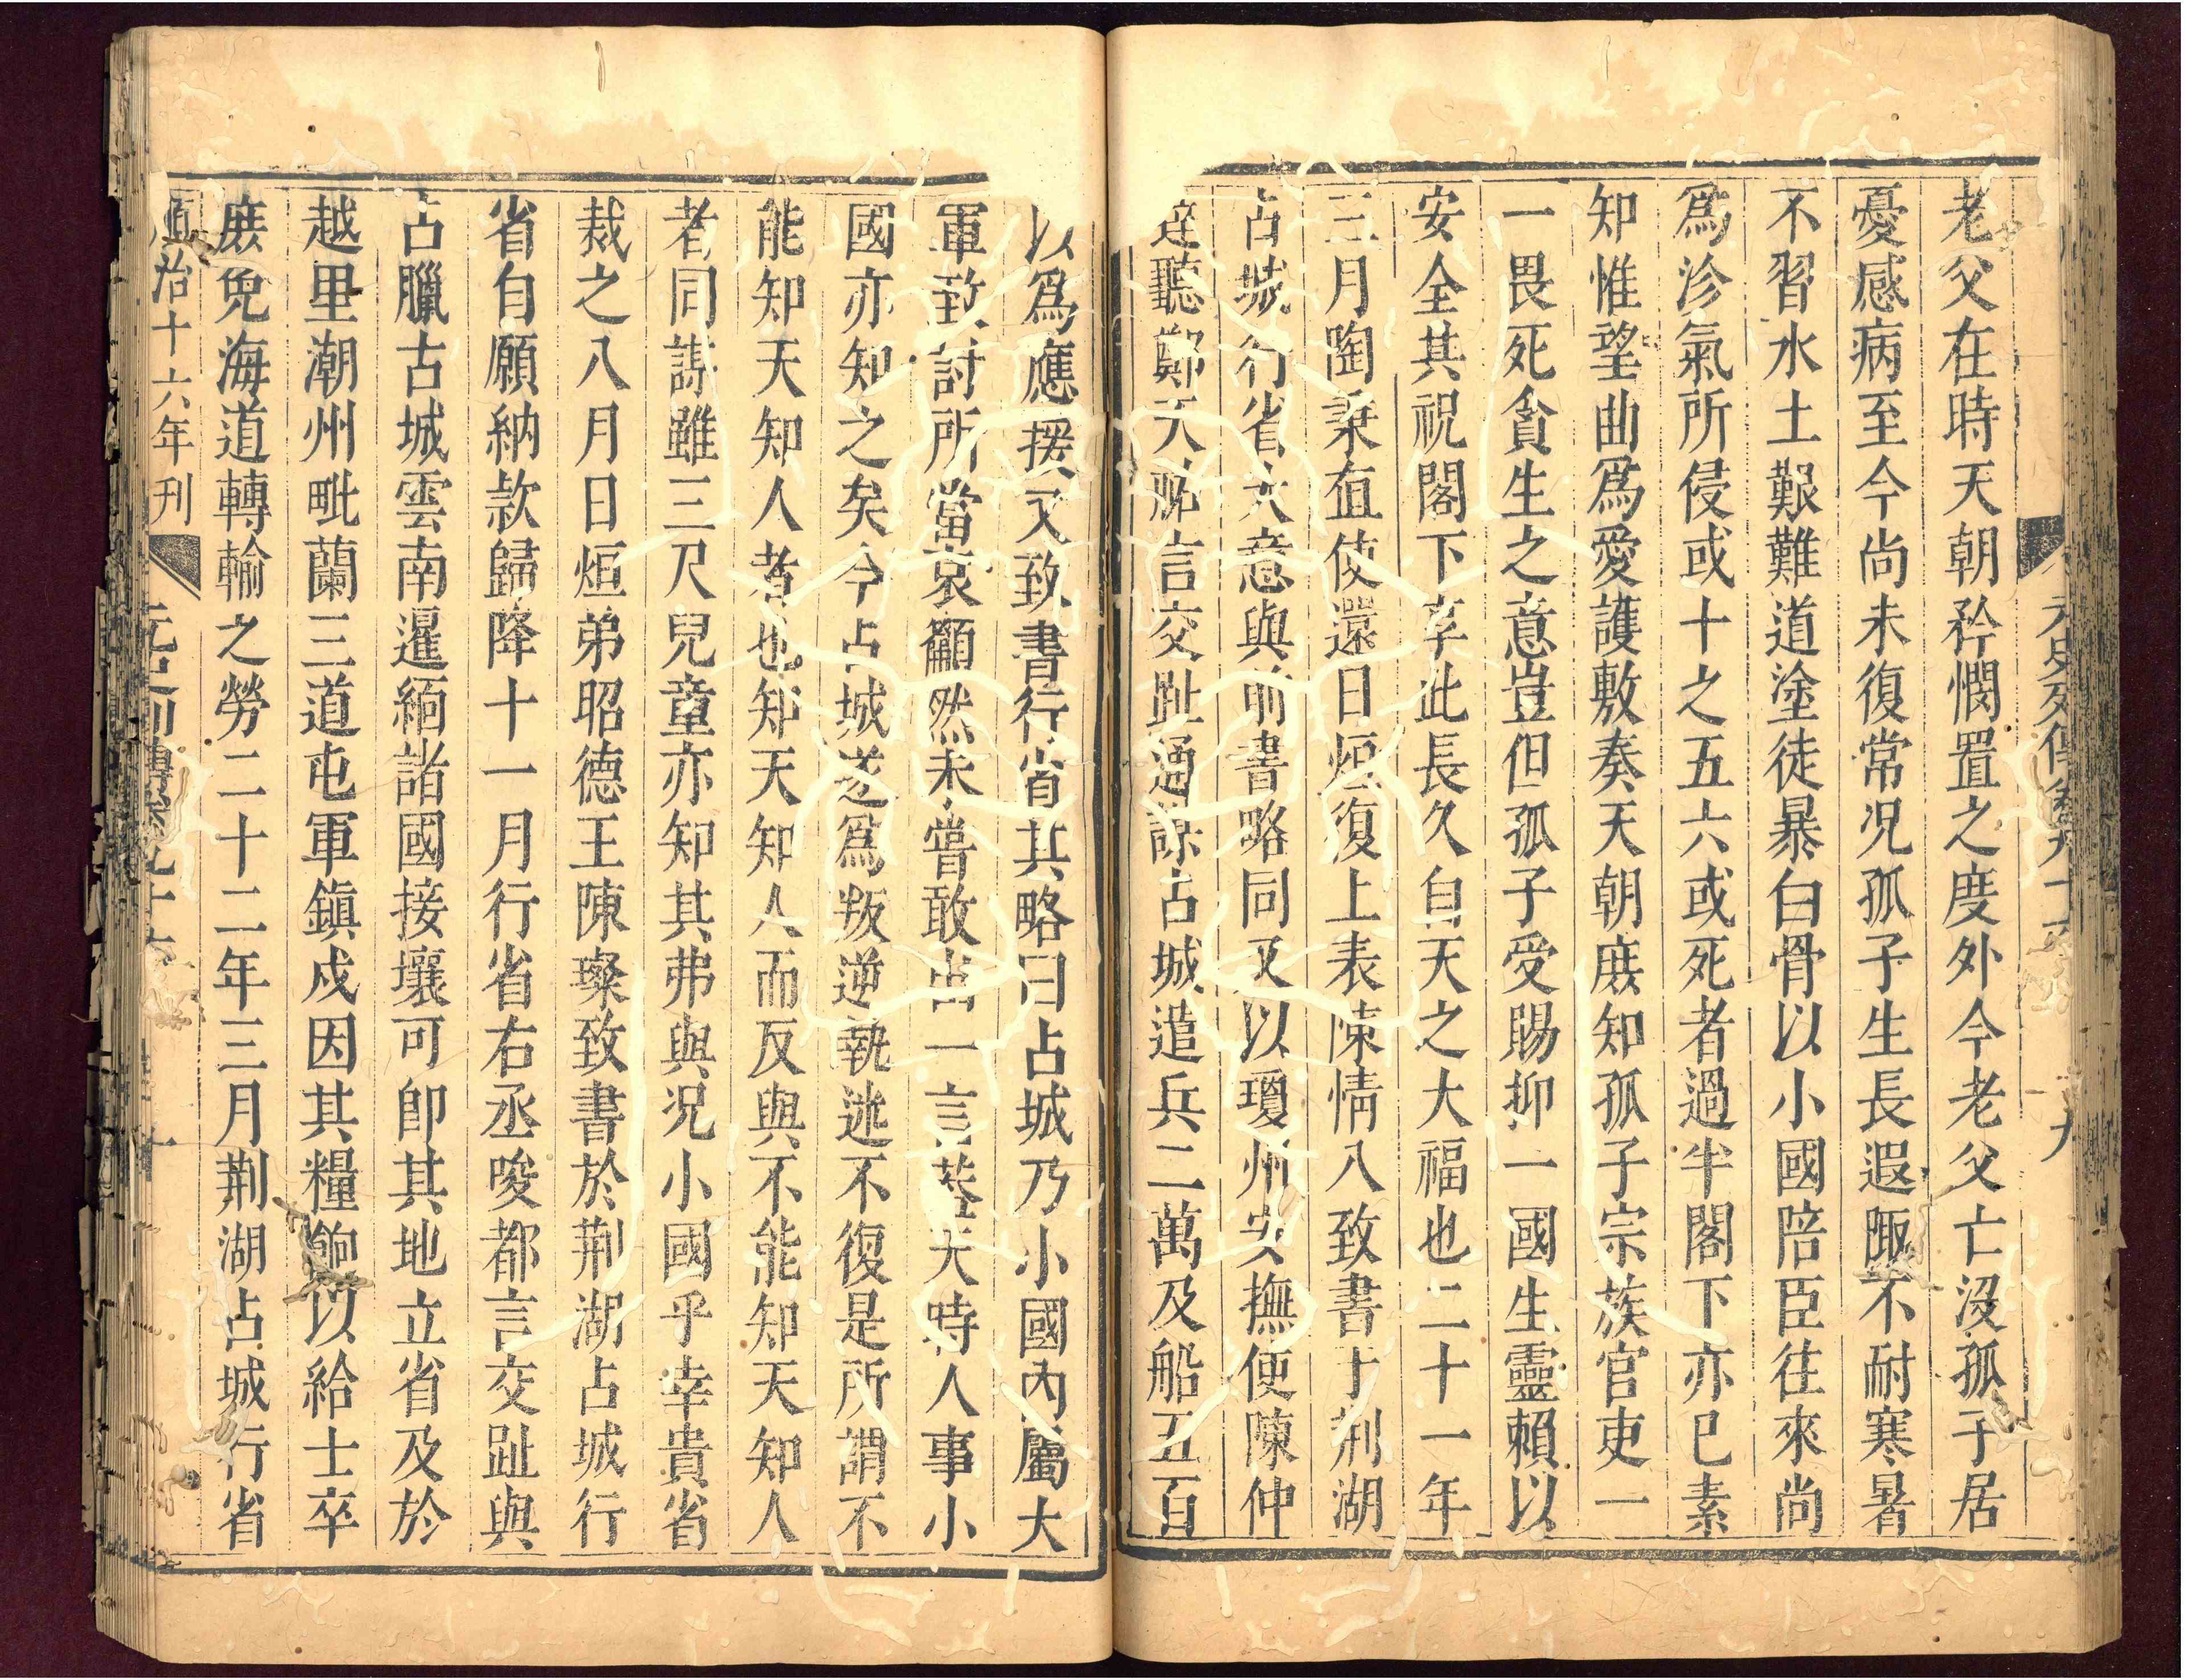 老父在時天朝矜憫置之度外今老父亡沒孤子居
憂感病至今尚未復常况孤子生長遐陬不耐寒暑
不習水土艱難道塗徒暴白骨以小國陪臣往來尚
爲沴氣所侵或十之五六或死者過半閣下亦已素
知惟望曲爲愛護敷奏天朝庶知孤子宗族官吏一
一畏死貪生之意豈但孤子受賜抑一國生靈賴以
安全共祝閣下享此長久自天之大福也二十一年
三月陶秉直使還日烜復上表陳情八致書于荊湖
占城行省大意與前書略同又以瓊州安撫使陳仲
達聽鄭天祐言交趾通謀占城遣兵二萬及船五百
以爲應援又致書行省其略曰占城乃小國內屬大
軍致討所當哀籲然未嘗敢出一言葢天時人事小
國亦知之矣今占城遂爲叛逆執迷不復是所謂不
能知天知人者也知天知人而反與不能知天知人
者同謀雖三尺兒童亦知其弗與况小國乎幸貴省
裁之八月日烜弟昭德王陳璨致書於荊湖占城行
省自願納款歸降十一月行省右丞唆都言交趾與
占臘古城雲南暹緬諸國接壤可卽其地立省及於
越里潮州毗蘭三道屯軍鎮戍因其糧餉以給士卒
庶免海道轉輸之勞二十二年三月荊湖占城行省
順治十六年刊 元史列傳卷九十六 十